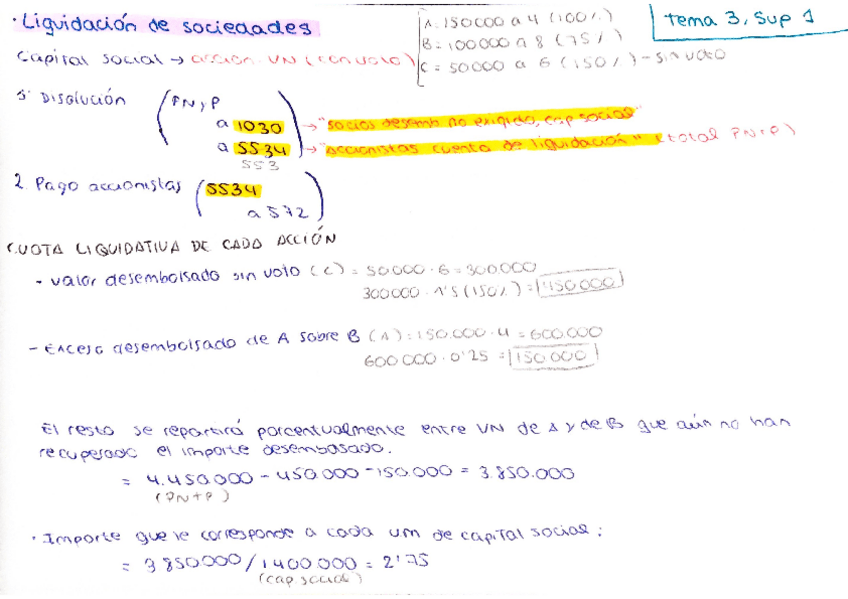 · Liquidación de sociedades
A: 150000 a 4 (100%)
B = 100000 a 8 (75%)
C = 50000 a 6 (150%) - sin voto
tema 3, Sup 1
Capital social → acción · VN (con voto)
Disolución
PN y P
a 1030 → "socios desemb no exigido, cap social"
a 5534 → "accionistas cuenta de liquidación" (total PN+P)
553
2. Pago accionistas
5534
a 572
CUOTA LIQUIDATIVA DE CADA ACCIÓN
- Valor desembolsado sin voto (C) = 50000 · 6 = 300000
300000 · 1'5 (150%) = 450.000
- Exceso desembolsado de A sobre B (A): 150.000 · 4 = 600.000
600000 · 0'25 = 150.000
El resto se repartirá porcentualmente entre VN de A y de B que aún no han
recuperado el importe desembosado.
= 4.450.000 - 450.000 - 150.000 = 3.850.000
(PN+P)
· Importe que le corresponde a cada um de capital social:
= 3850000 / 1400.000 = 2'75
(cap social)